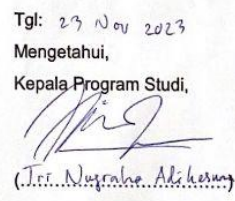 Tgl: 23 Nov 2023
Mengetahui,
Kepala Program Studi,
(Tri Nugraha Adikesuma)